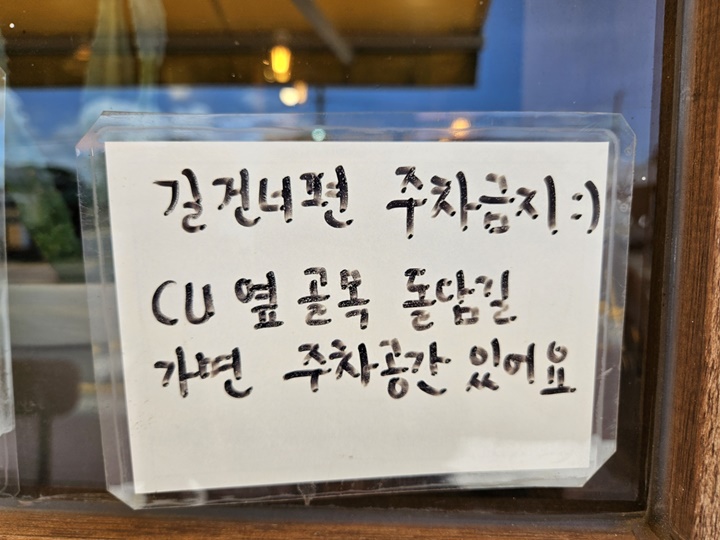 길건너편 주차금지:)
CU 옆 골목 돌담길
가변 주차공간 있어요